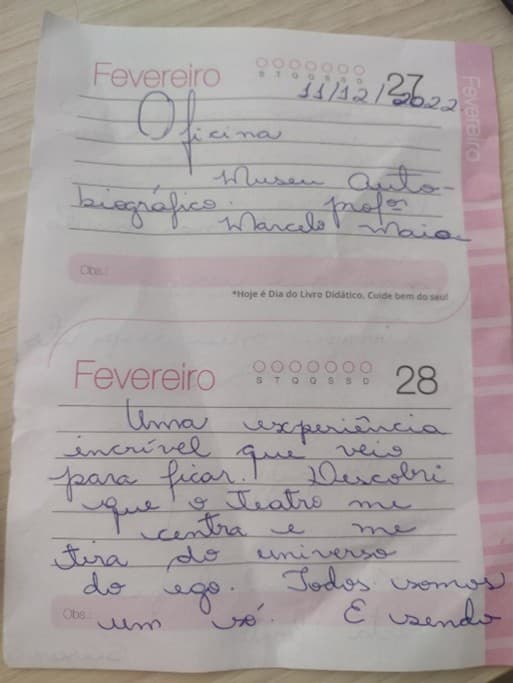 Fevereiro
S T Q Q S S D
27
11/12/2022
Oficina
Museu Auto-
biográfico. profº
Marcelo Maia
Obs.:
*Hoje é Dia do Livro Didático. Cuide bem do seu!
Fevereiro
Fevereiro
S T Q Q S S D
28
Uma experiência
incrível que veio
para ficar. Descobri
que o Teatro me
centra e me
tira do universo
do ego. Todos somos
Obs.:
um só. E sendo